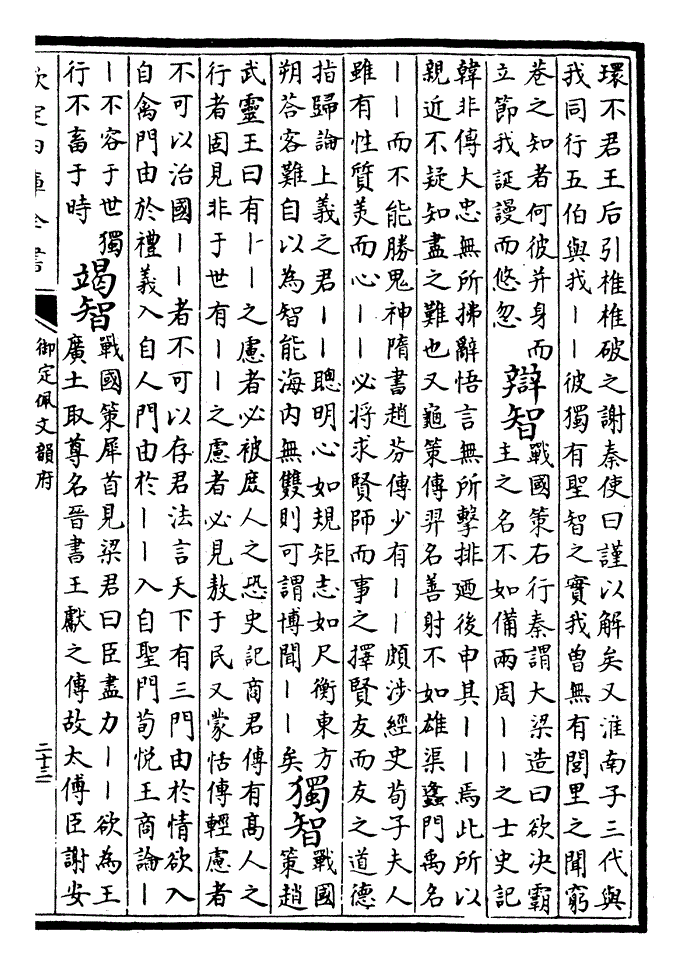 環不君王后引椎椎破之謝秦使曰謹以解矣又淮南子三代與
我同行五伯與我丨丨彼獨有聖智之實我曽無有閭里之聞窮
巷之知者何彼并身而
立節我誕謾而悠忽
辯智
戰國策右行秦謂大梁造曰欲决霸
主之名不如備兩周丨丨之士史記
韓非傳大忠無所拂辭悟言無所擊排廼後申其丨丨焉此所以
親近不疑知盡之難也又龜策傳羿名善射不如雄渠蠭門禹名
丨丨而不能勝鬼神隋書趙芬傳少有丨丨頗涉經史荀子夫人
雖有性質美而心丨丨必將求賢師而事之擇賢友而友之道德
指歸論上義之君丨丨聰明心如規矩志如尺衡東方
朔荅客難自以為智能海内無雙則可謂博聞丨丨矣
獨智
戰國
策趙
武靈王曰有丨丨之慮者必被庶人之恐史記商君傳有髙人之
行者固見非于世有丨丨之慮者必見敖于民又蒙恬傳輕慮者
不可以治國丨丨者不可以存君法言天下有三門由於情欲入
自禽門由於禮義入自人門由於丨丨入自聖門荀悦王商論丨
丨不容于世獨
行不畜于時
竭智
戰國策犀首見梁君曰臣盡力丨丨欲為王
廣土取尊名晉書王獻之傳故太傅臣謝安
欽定四庫全書
御定佩文韻府
二十三